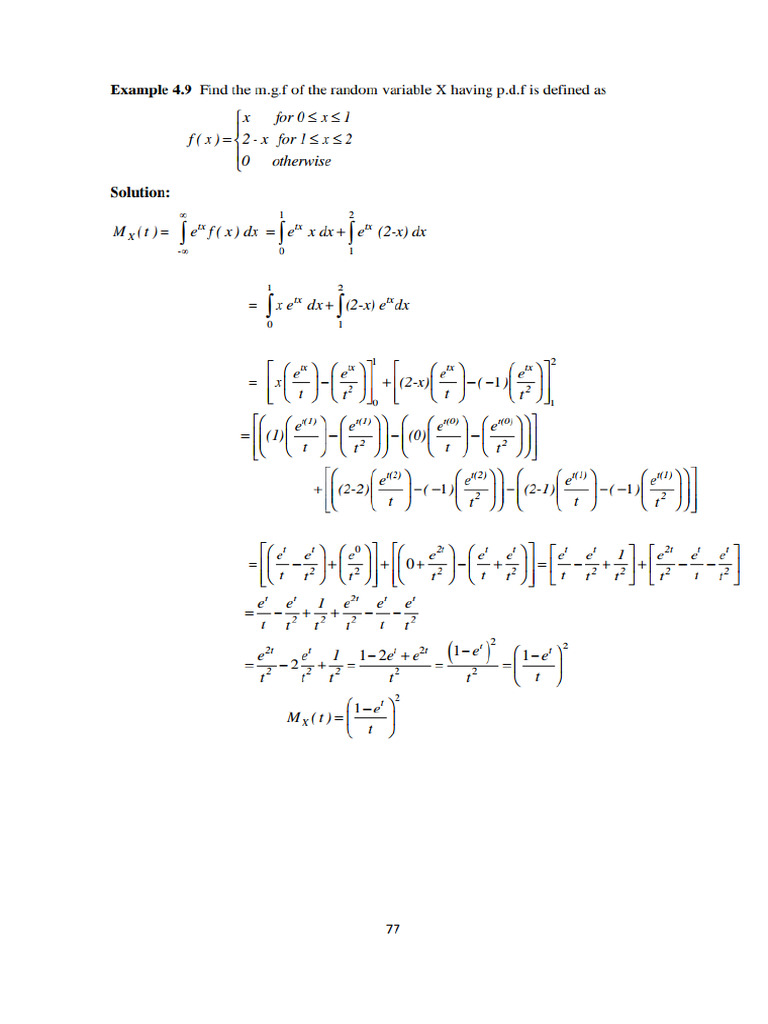 Example 4.9 Find the m.g.f of the random variable X having p.d.f is defined as
f ( x ) = { x for 0 ≤ x ≤ 1
2 - x for 1 ≤ x ≤ 2
0 otherwise
Solution:
M_X ( t ) = ∫_{-∞}^{∞} e^{tx} f ( x ) dx = ∫_0^1 e^{tx} x dx + ∫_1^2 e^{tx} (2-x) dx
= ∫_0^1 x e^{tx} dx + ∫_1^2 (2-x) e^{tx} dx
= [ x ( e^{tx} / t ) − ( e^{tx} / t^2 ) ]_0^1 + [ (2-x) ( e^{tx} / t ) − ( −1 ) ( e^{tx} / t^2 ) ]_1^2
= [ ( (1) ( e^{t(1)} / t ) − ( e^{t(1)} / t^2 ) ) − ( (0) ( e^{t(0)} / t ) − ( e^{t(0)} / t^2 ) ) ]
+ [ ( (2-2) ( e^{t(2)} / t ) − ( −1 ) ( e^{t(2)} / t^2 ) ) − ( (2-1) ( e^{t(1)} / t ) − ( −1 ) ( e^{t(1)} / t^2 ) ) ]
= [ ( e^t / t − e^t / t^2 ) + ( e^0 / t^2 ) ] + [ ( 0 + e^{2t} / t^2 ) − ( e^t / t + e^t / t^2 ) ] = [ e^t / t − e^t / t^2 + 1 / t^2 ] + [ e^{2t} / t^2 − e^t / t − e^t / t^2 ]
= e^t / t − e^t / t^2 + 1 / t^2 + e^{2t} / t^2 − e^t / t − e^t / t^2
= e^{2t} / t^2 − 2 e^t / t^2 + 1 / t^2 = ( 1 − 2e^t + e^{2t} ) / t^2 = ( 1 − e^t )^2 / t^2 = ( ( 1 − e^t ) / t )^2
M_X ( t ) = ( ( 1 − e^t ) / t )^2
77